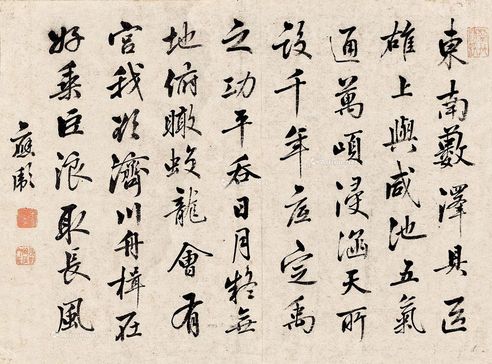 東南藪澤具區
雄上與咸池五氣
通萬頃浸涵天所
設千年底定禹
之功平吞日月疑無
地俯瞰蛟龍會有
宮我欲濟川舟楫在
好乘巨浪馭長風